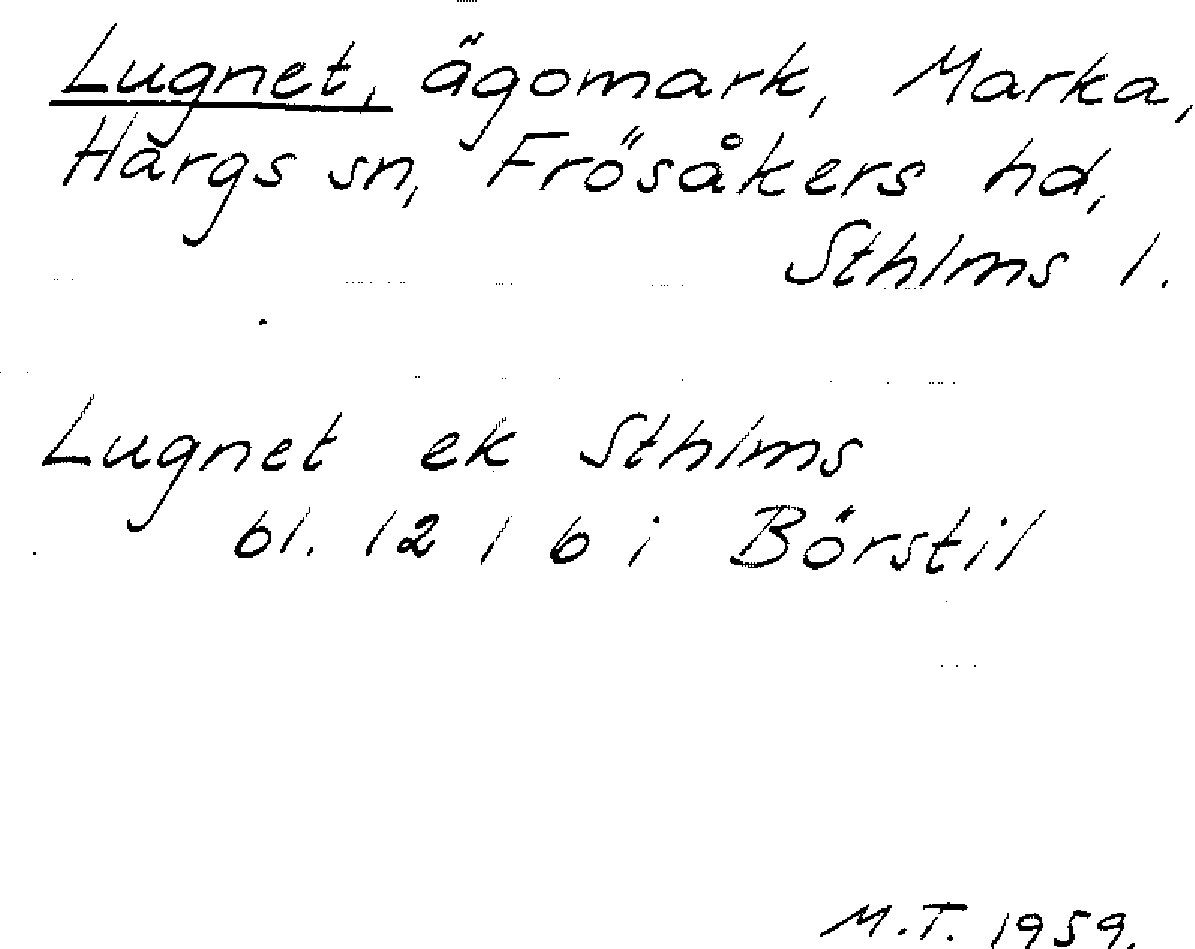 Lugnet, ägomark, Marka,
Hargs sn, Frösåkers hd,
Sthlms l.
Lugnet ek Sthlms
bl. 12 1 b i Börstil
M.T. 1959.